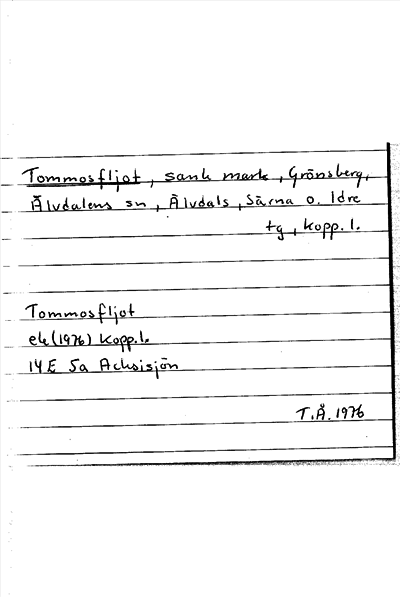 Tommosfljot, sank mark, Grönsberg,
Älvdalens sn, Älvdals, Särna o. Idre
tg, Kopp. l.
Tommosfljot
ek (1976) Kopp.l.
14E 5a Acksisjön
T.Å. 1976